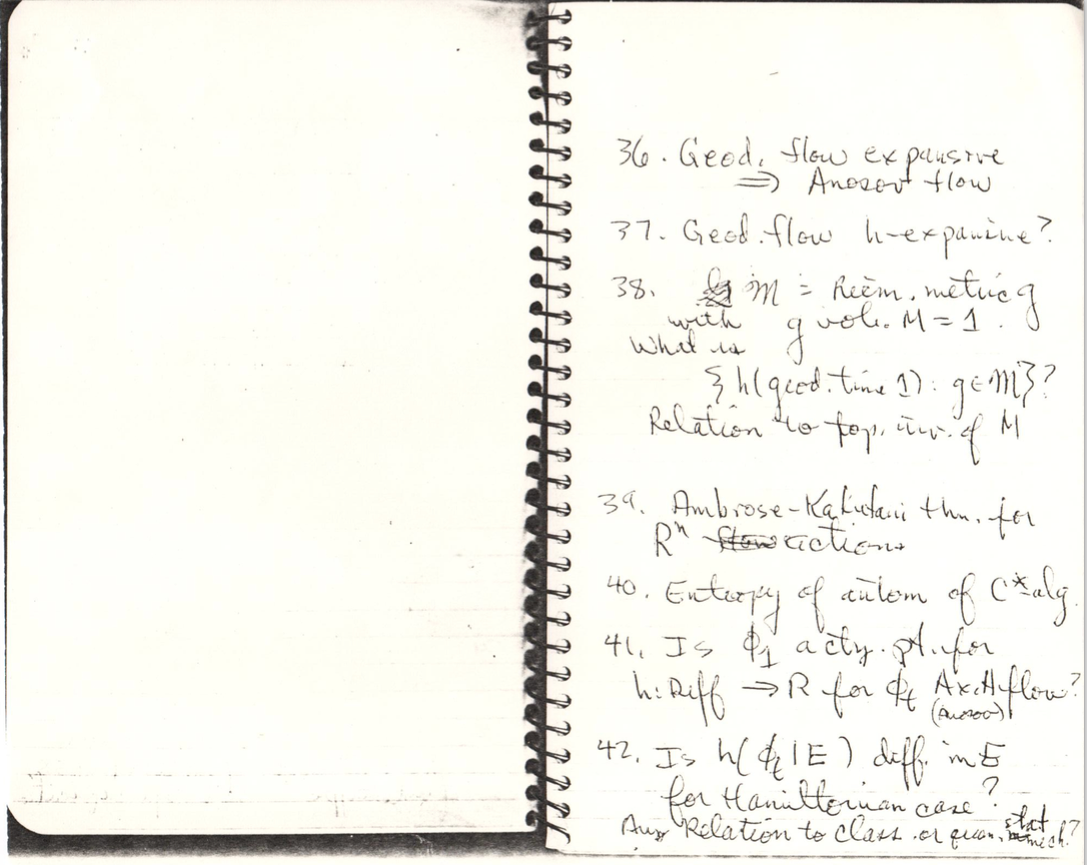 36. Geod. flow expansive
⇒ Anosov flow
37. Geod. flow h-expansive?
38. M = Riem. metric g
with g vol. M = 1.
What is
{h(geod. time 1): g∈M}?
Relation to top. inv. of M
39. Ambrose-Kakutani thm. for
Rⁿ actions
40. Entropy of autom of C*-alg.
41. Is ϕ₁ a cty. pt. for
h: Diff → R for ϕₜ Ax. A flow?
(Anosov)
42. Is h(ϕₜ|E) diff. in E
for Hamiltonian case?
Relation to class. or quan. stat mech?